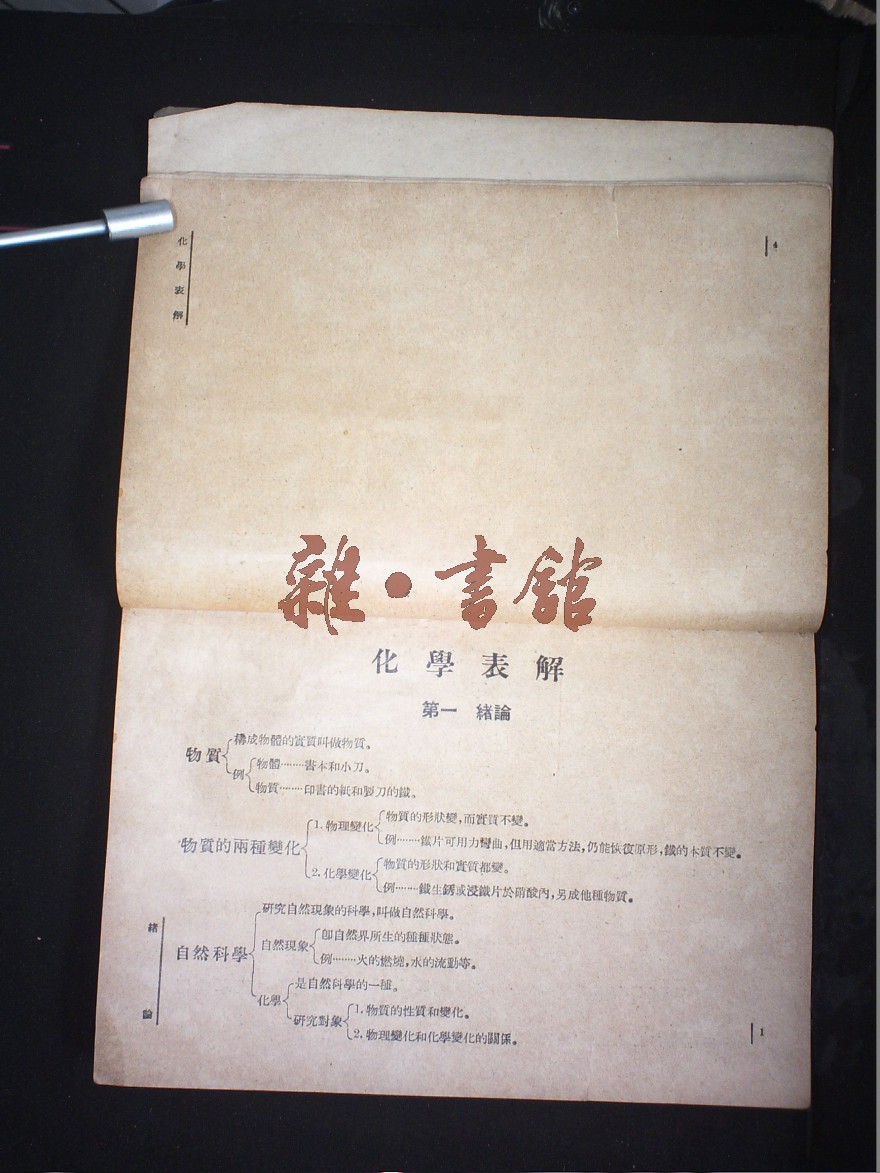 化學表解
4
雜·書館
化學表解
第一 緒論
物質
構成物體的實質叫做物質。
例
物體………書本和小刀。
物質………印書的紙和製刀的鐵。
物質的兩種變化
1. 物理變化
物質的形狀變，而實質不變。
例………鐵片可用力彎曲，但用適當方法，仍能恢復原形，鐵的本質不變。
2. 化學變化
物質的形狀和實質都變。
例………鐵生銹或浸鐵片於硝酸內，另成他種物質。
自然科學
研究自然現象的科學，叫做自然科學。
自然現象
卽自然界所生的種種狀態。
例………火的燃燒，水的流動等。
化學
是自然科學的一種。
研究對象
1. 物質的性質和變化。
2. 物理變化和化學變化的關係。
緒論
1